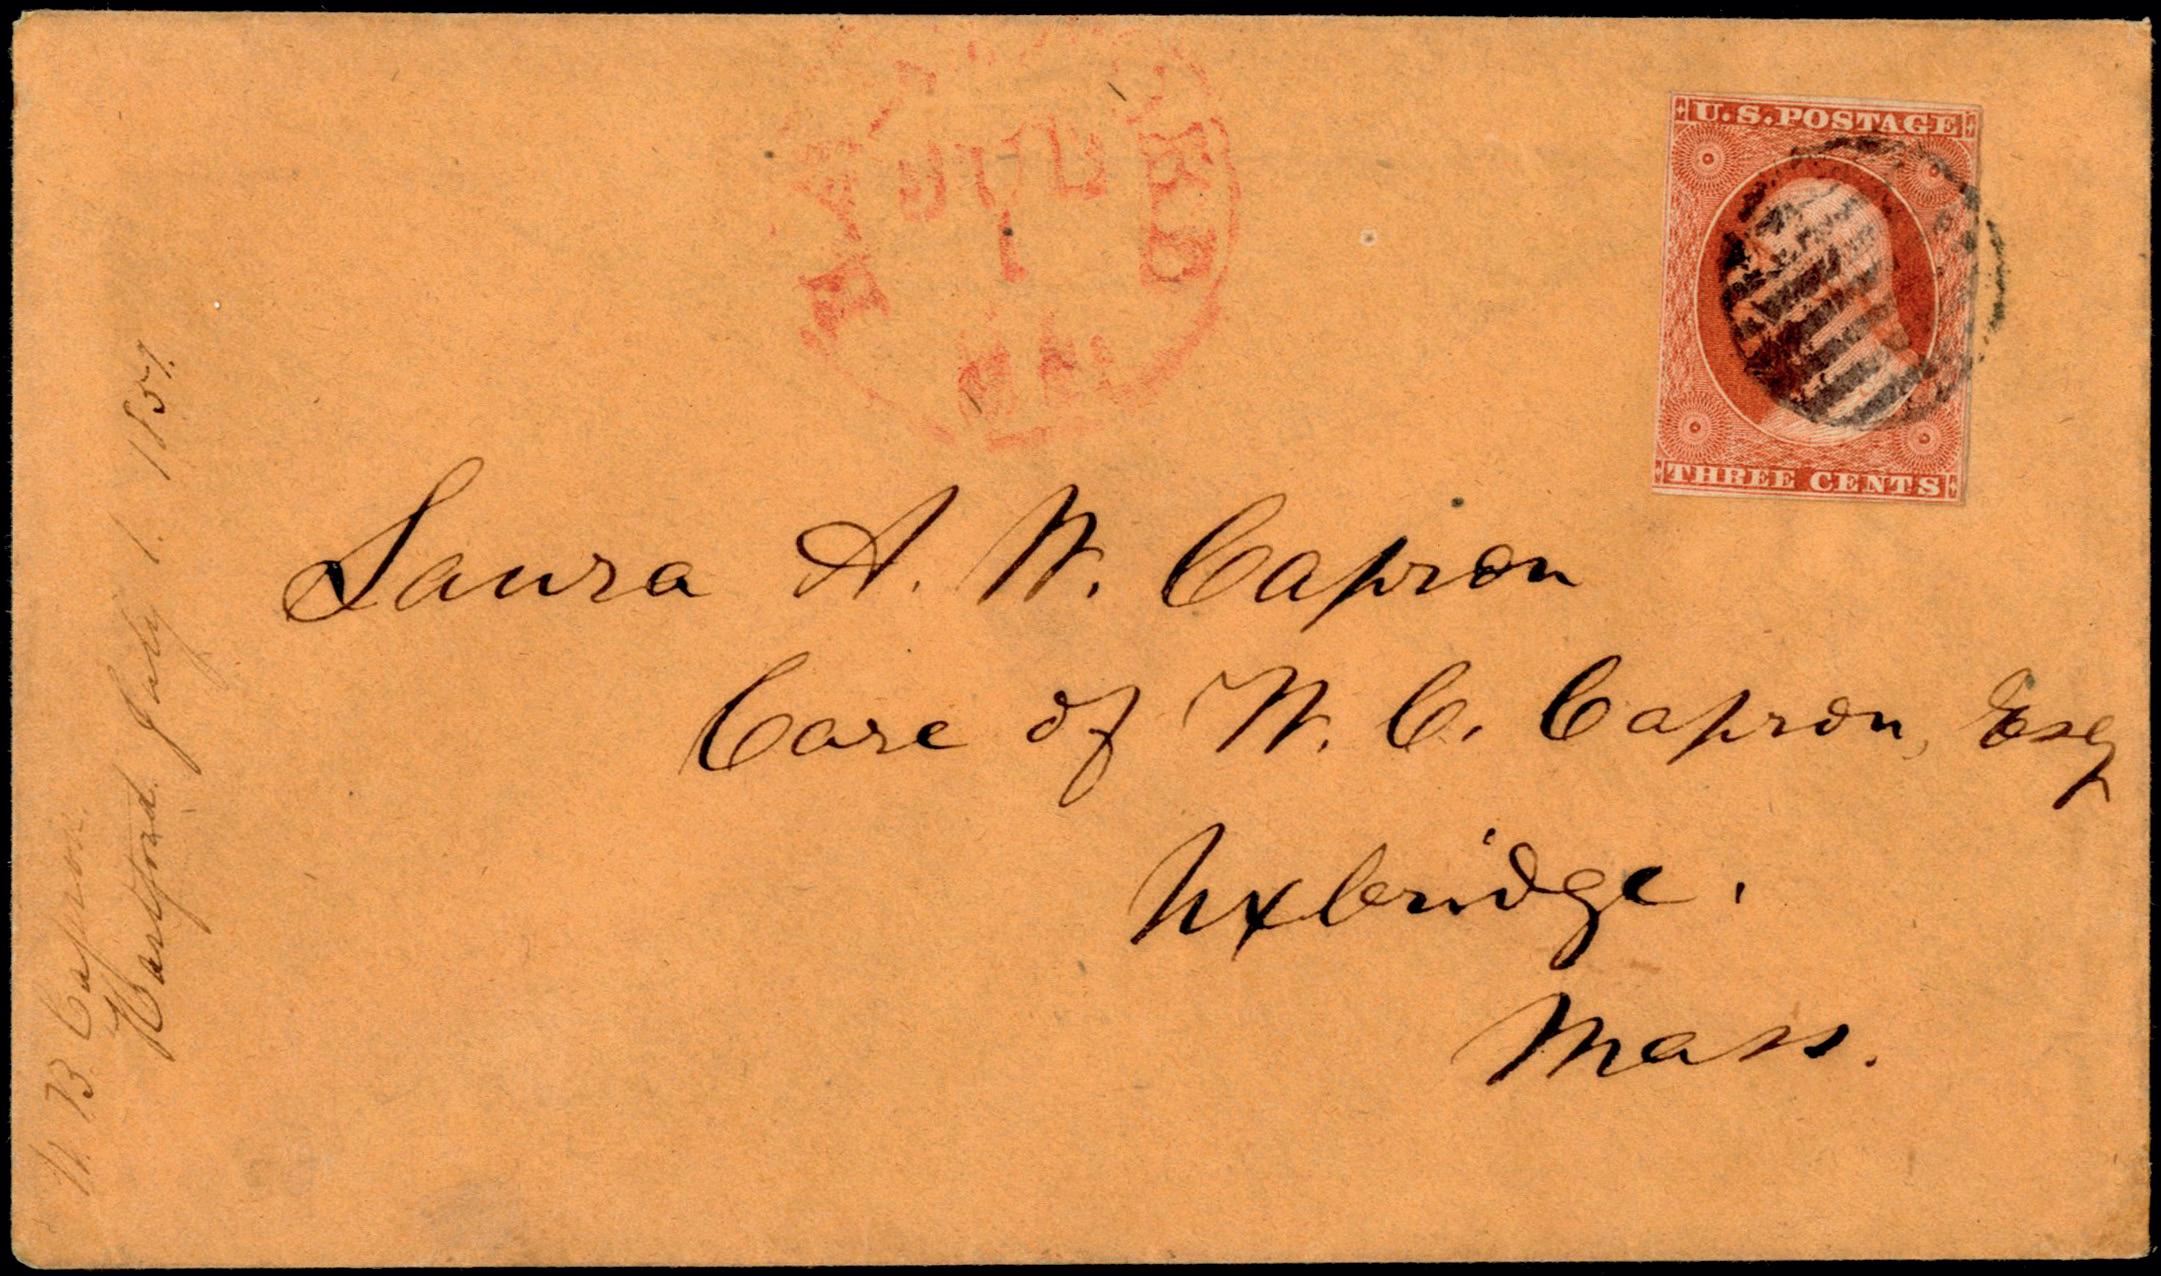 HARTFORD
JUL
1
U.S. POSTAGE
THREE CENTS
Laura A. W. Capron
Care of W. C. Capron, Esq
Uxbridge.
Mass.
W. B. Capron.
Hartford. July 1. 1851.